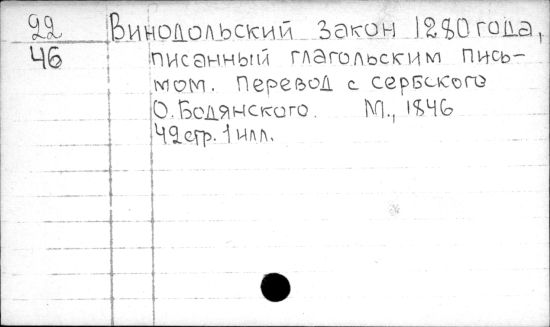 22 Винодольский закон 1280 года,
46 писанный глагольским пись-
мом. Перевод с сербского
О. Бодянского. М., 1846
42 стр. 1 илл.